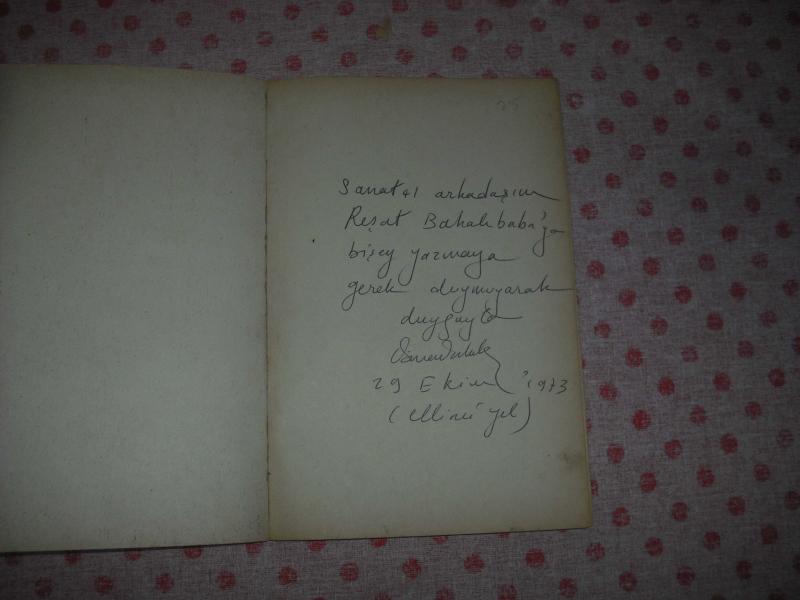 25
Sanatçı arkadaşım
Reşat Bahalıbaba'ya
bişey yazmaya
gerek duymıyarak
duyguyla
29 Ekim 1973
(ellinci yıl)